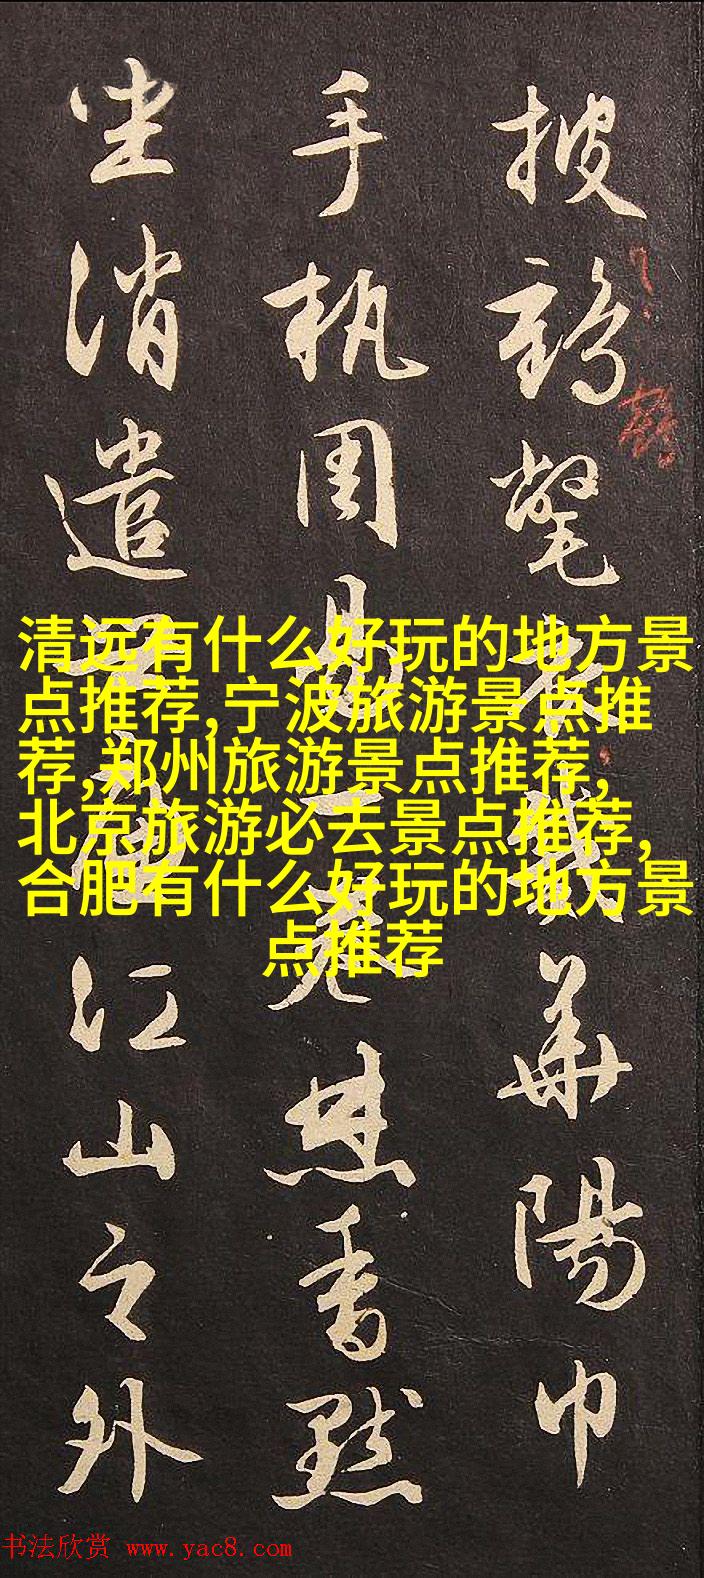 披鶴氅衣戴華陽巾
手執周易一卷焚香默
坐消遣世慮江山之外
清远有什么好玩的地方景
点推荐,宁波旅游景点推
荐,郑州旅游景点推荐,
北京旅游必去景点推荐,
合肥有什么好玩的地方景
点推荐
书法欣赏 www.yac8.com